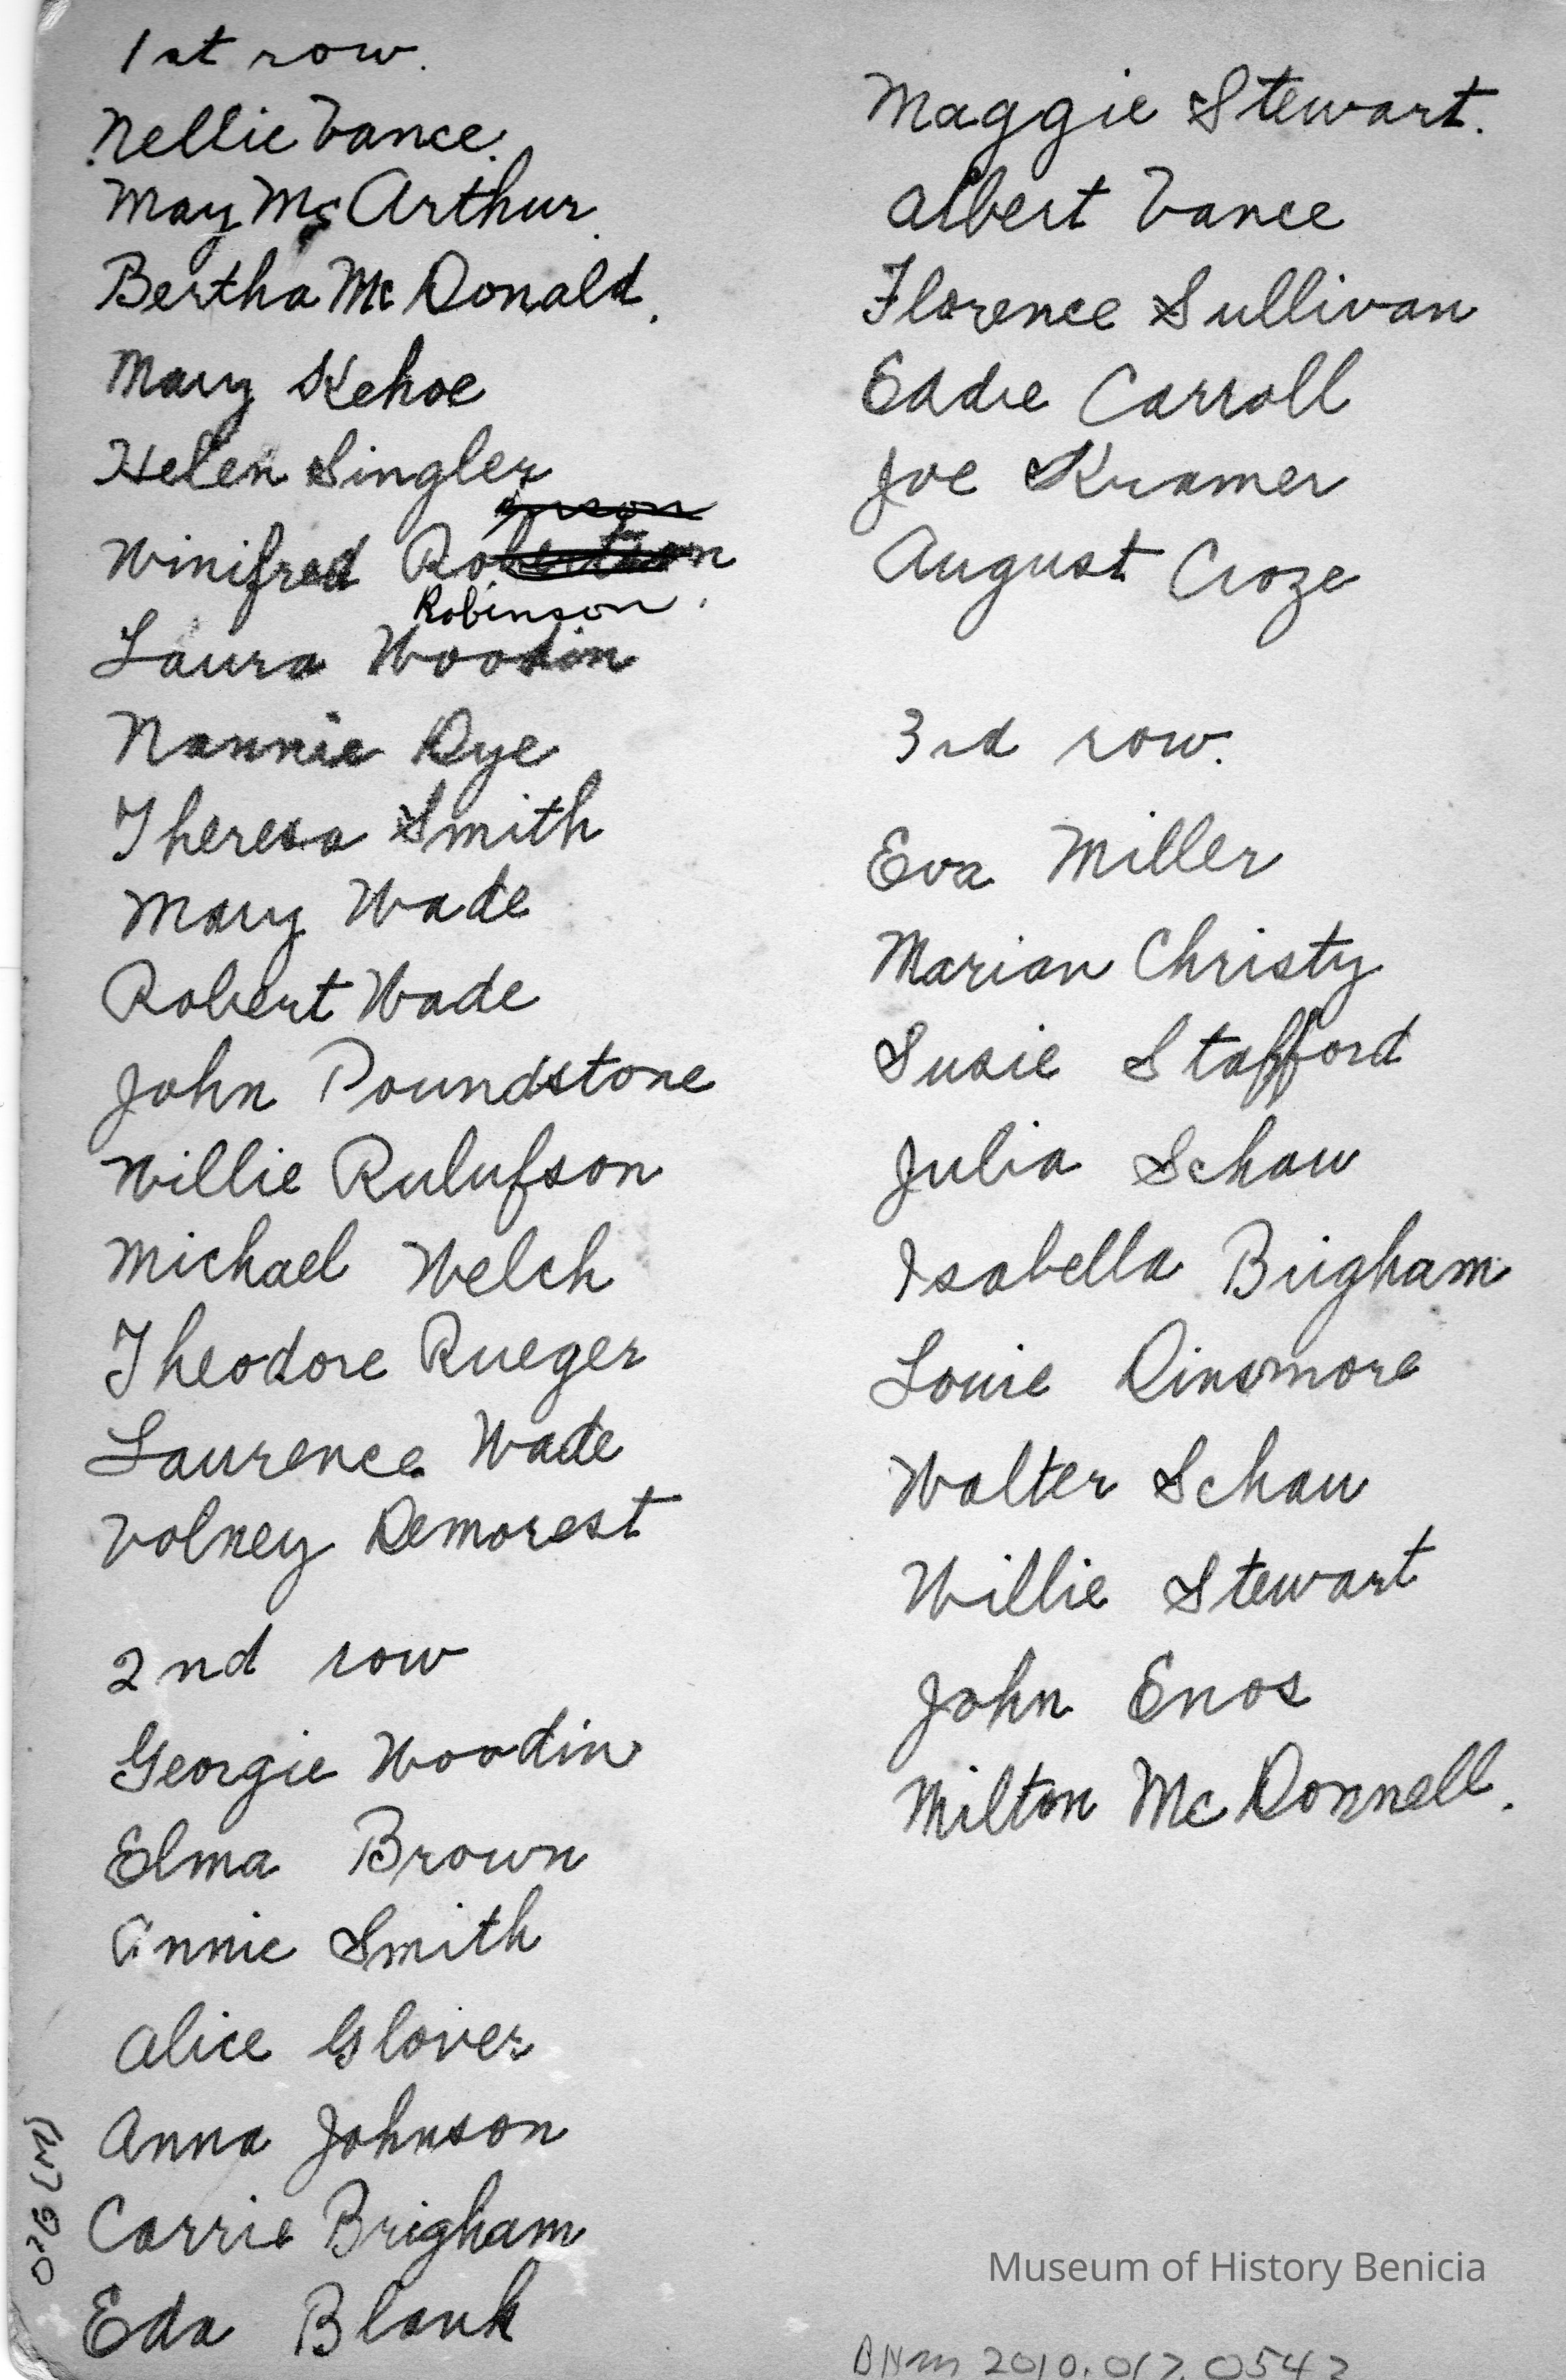 1st row.
Nellie Vance.
May Mc Arthur.
Bertha Mc Donald.
Mary Kehoe
Helen Singler
Winifred Robertson
Robinson.
Laura Woodin
Nannie Dye
Theresa Smith
Mary Wade
Robert Wade
John Poundstone
Willie Rulufson
Michael Welch
Theodore Rueger
Laurence Wade
Volney Demorest
2nd row
Georgie Woodin
Elma Brown
Annie Smith
Alice Glover
Anna Johnson
Carrie Brigham
Eda Blank
Maggie Stewart.
Albert Vance
Florence Sullivan
Eddie Carroll
Joe Kramer
August Croze
3rd row.
Eva Miller
Marian Christy
Susie Stafford
Julia Schaw
Isabella Brigham
Louie Dinsmore
Walter Schaw
Willie Stewart
John Enos
Milton Mc Donnell.
Museum of History Benicia
2010.017.0543